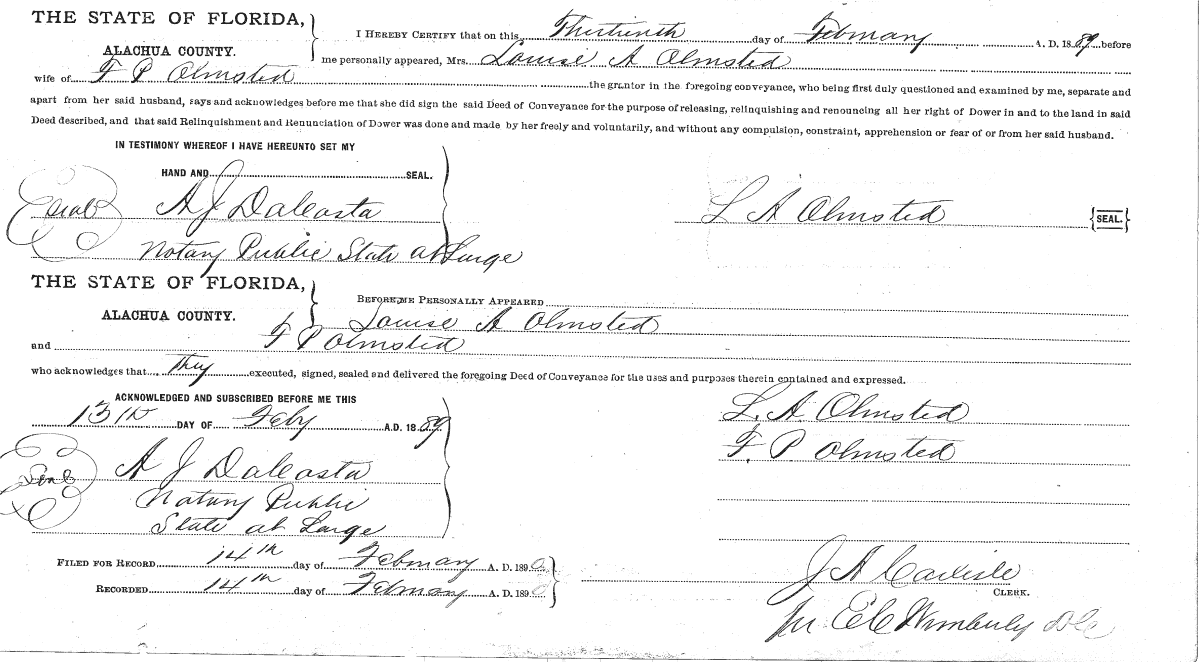 THE STATE OF FLORIDA,
ALACHUA COUNTY.
I HEREBY CERTIFY that on this Thirteenth day of February A. D. 1889 before
me personally appeared, Mrs. Louise A Olmsted
wife of F P Olmsted the grantor in the foregoing conveyance, who being first duly questioned and examined by me, separate and
apart from her said husband, says and acknowledges before me that she did sign the said Deed of Conveyance for the purpose of releasing, relinquishing and renouncing all her right of Dower in and to the land in said
Deed described, and that said Relinquishment and Renunciation of Dower was done and made by her freely and voluntarily, and without any compulsion, constraint, apprehension or fear of or from her said husband.
IN TESTIMONY WHEREOF I HAVE HEREUNTO SET MY
HAND AND SEAL.
Seal A J DaCosta L A Olmsted {SEAL.}
Notary Public State at Large
THE STATE OF FLORIDA,
ALACHUA COUNTY.
BEFORE ME PERSONALLY APPEARED
Louise A Olmsted
and F P Olmsted
who acknowledges that they executed, signed, sealed and delivered the foregoing Deed of Conveyance for the uses and purposes therein contained and expressed.
ACKNOWLEDGED AND SUBSCRIBED BEFORE ME THIS
13th DAY OF Feby A.D. 1889
L. A. Olmsted
F. P Olmsted
Seal A J DaCosta
Notary Public
State at Large
FILED FOR RECORD 14th day of February A. D. 1890
RECORDED 14th day of February A. D. 1890
J A Carlisle
CLERK.
E C Wimberly